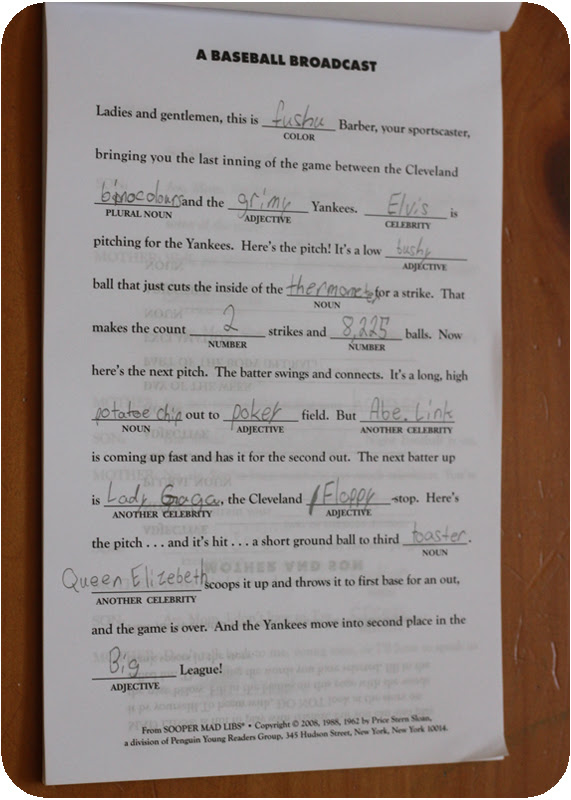 A BASEBALL BROADCAST
Ladies and gentlemen, this is fushu Barber, your sportscaster,
COLOR
bringing you the last inning of the game between the Cleveland
binocolours and the grimy Yankees. Elvis is
PLURAL NOUN ADJECTIVE CELEBRITY
pitching for the Yankees. Here's the pitch! It's a low bushy
ADJECTIVE
ball that just cuts the inside of the for a strike. That
NOUN
makes the count 2 strikes and 8,225 balls. Now
NUMBER NUMBER
here's the next pitch. The batter swings and connects. It's a long, high
potatoe chip out to pokey field. But Abe. Link
NOUN ADJECTIVE ANOTHER CELEBRITY
is coming up fast and has it for the second out. The next batter up
is Lady Gaga, the Cleveland Floppy -stop. Here's
ANOTHER CELEBRITY ADJECTIVE
the pitch . . . and it's hit . . . a short ground ball to third toaster.
NOUN
Queen Elizebeth scoops it up and throws it to first base for an out,
ANOTHER CELEBRITY
and the game is over. And the Yankees move into second place in the
Big League!
ADJECTIVE
From SOOPER MAD LIBS® • Copyright © 2008, 1988, 1962 by Price Stern Sloan,
a division of Penguin Young Readers Group, 345 Hudson Street, New York, New York 10014.